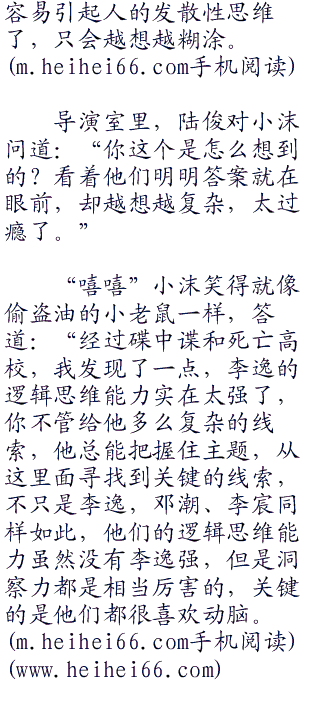 容易引起人的发散性思维
了，只会越想越糊涂。
(m.heihei66.com手机阅读)
导演室里，陆俊对小沫
问道：“你这个是怎么想到
的？看着他们明明答案就在
眼前，却越想越复杂，太过
瘾了。”
“嘻嘻”小沫笑得就像
偷盗油的小老鼠一样，答
道：“经过碟中谍和死亡高
校，我发现了一点，李逸的
逻辑思维能力实在太强了，
你不管给他多么复杂的线
索，他总能把握住主题，从
这里面寻找到关键的线索，
不只是李逸，邓潮、李宸同
样如此，他们的逻辑思维能
力虽然没有李逸强，但是洞
察力都是相当厉害的，关键
的是他们都很喜欢动脑。
(m.heihei66.com手机阅读)
(www.heihei66.com)